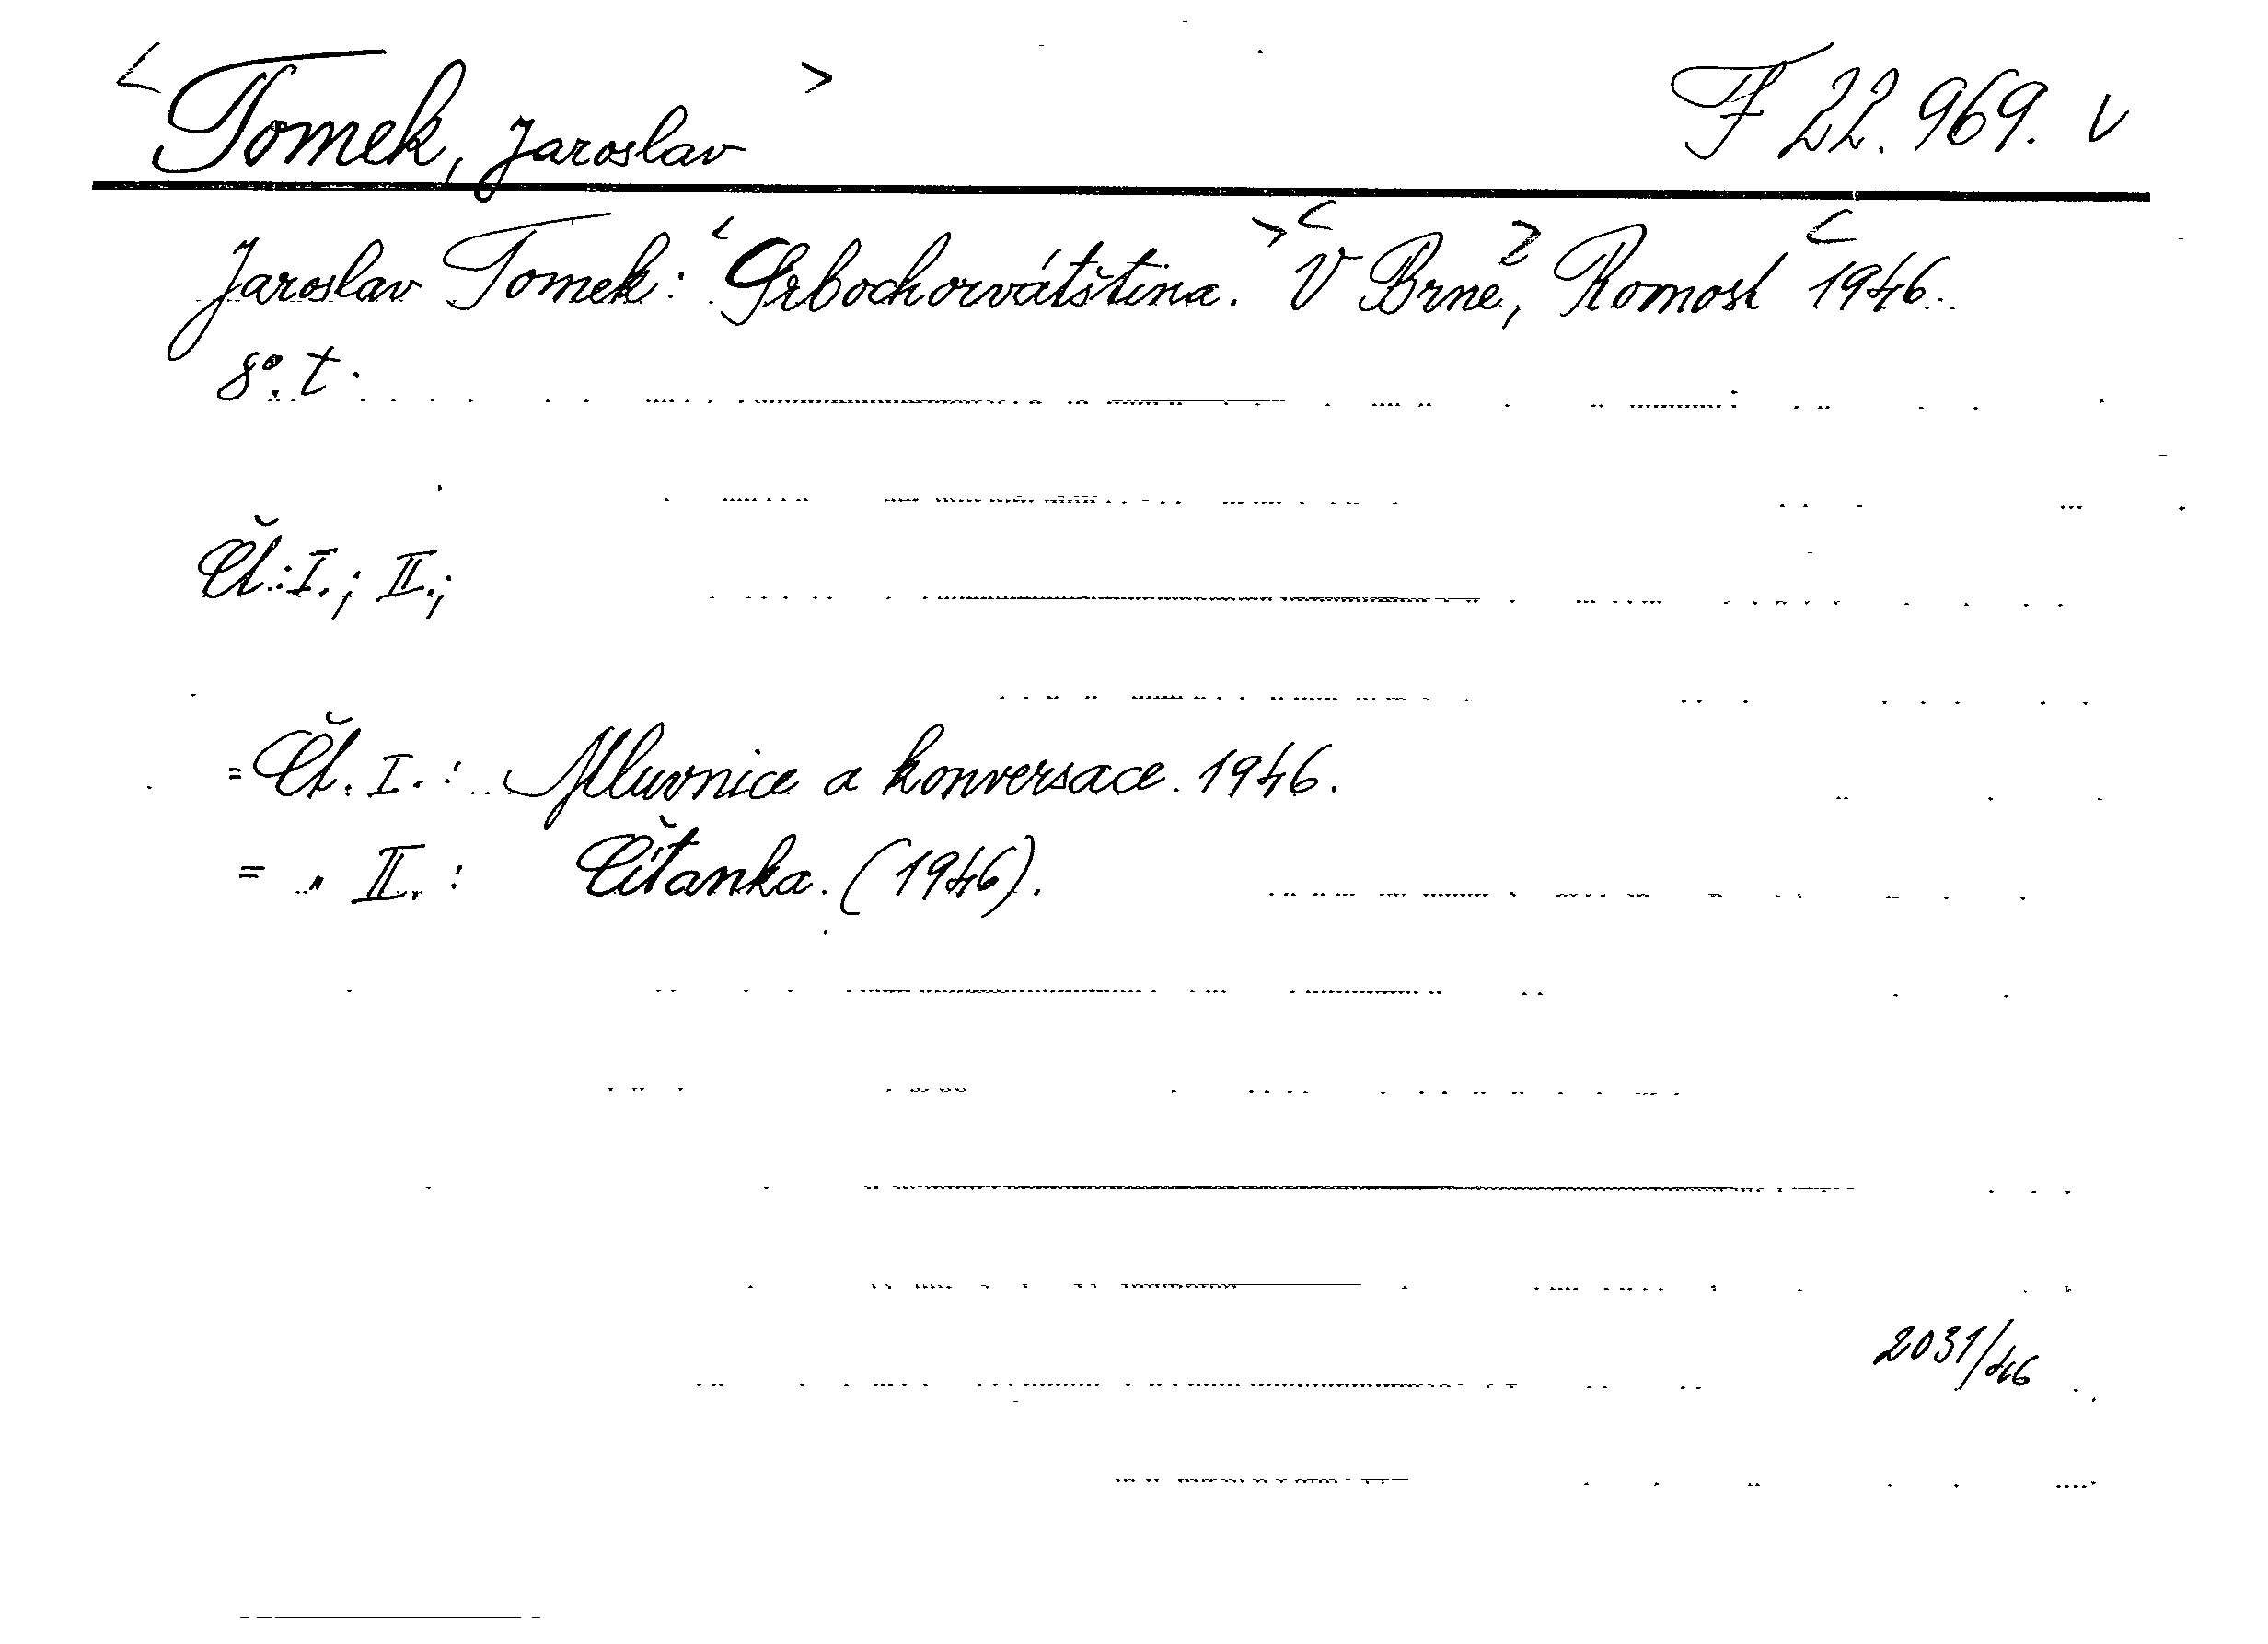 <Tomek, Jaroslav> F 22.969. v
Jaroslav Tomek: <Srbochorvátština.> <V Brně,> Komosl <1946.
8°. t.
Čl.: I.; II.;
= Čl. I.: Mluvnice a konversace. 1946.
= „ II.: Čítanka. (1946).
2031/46